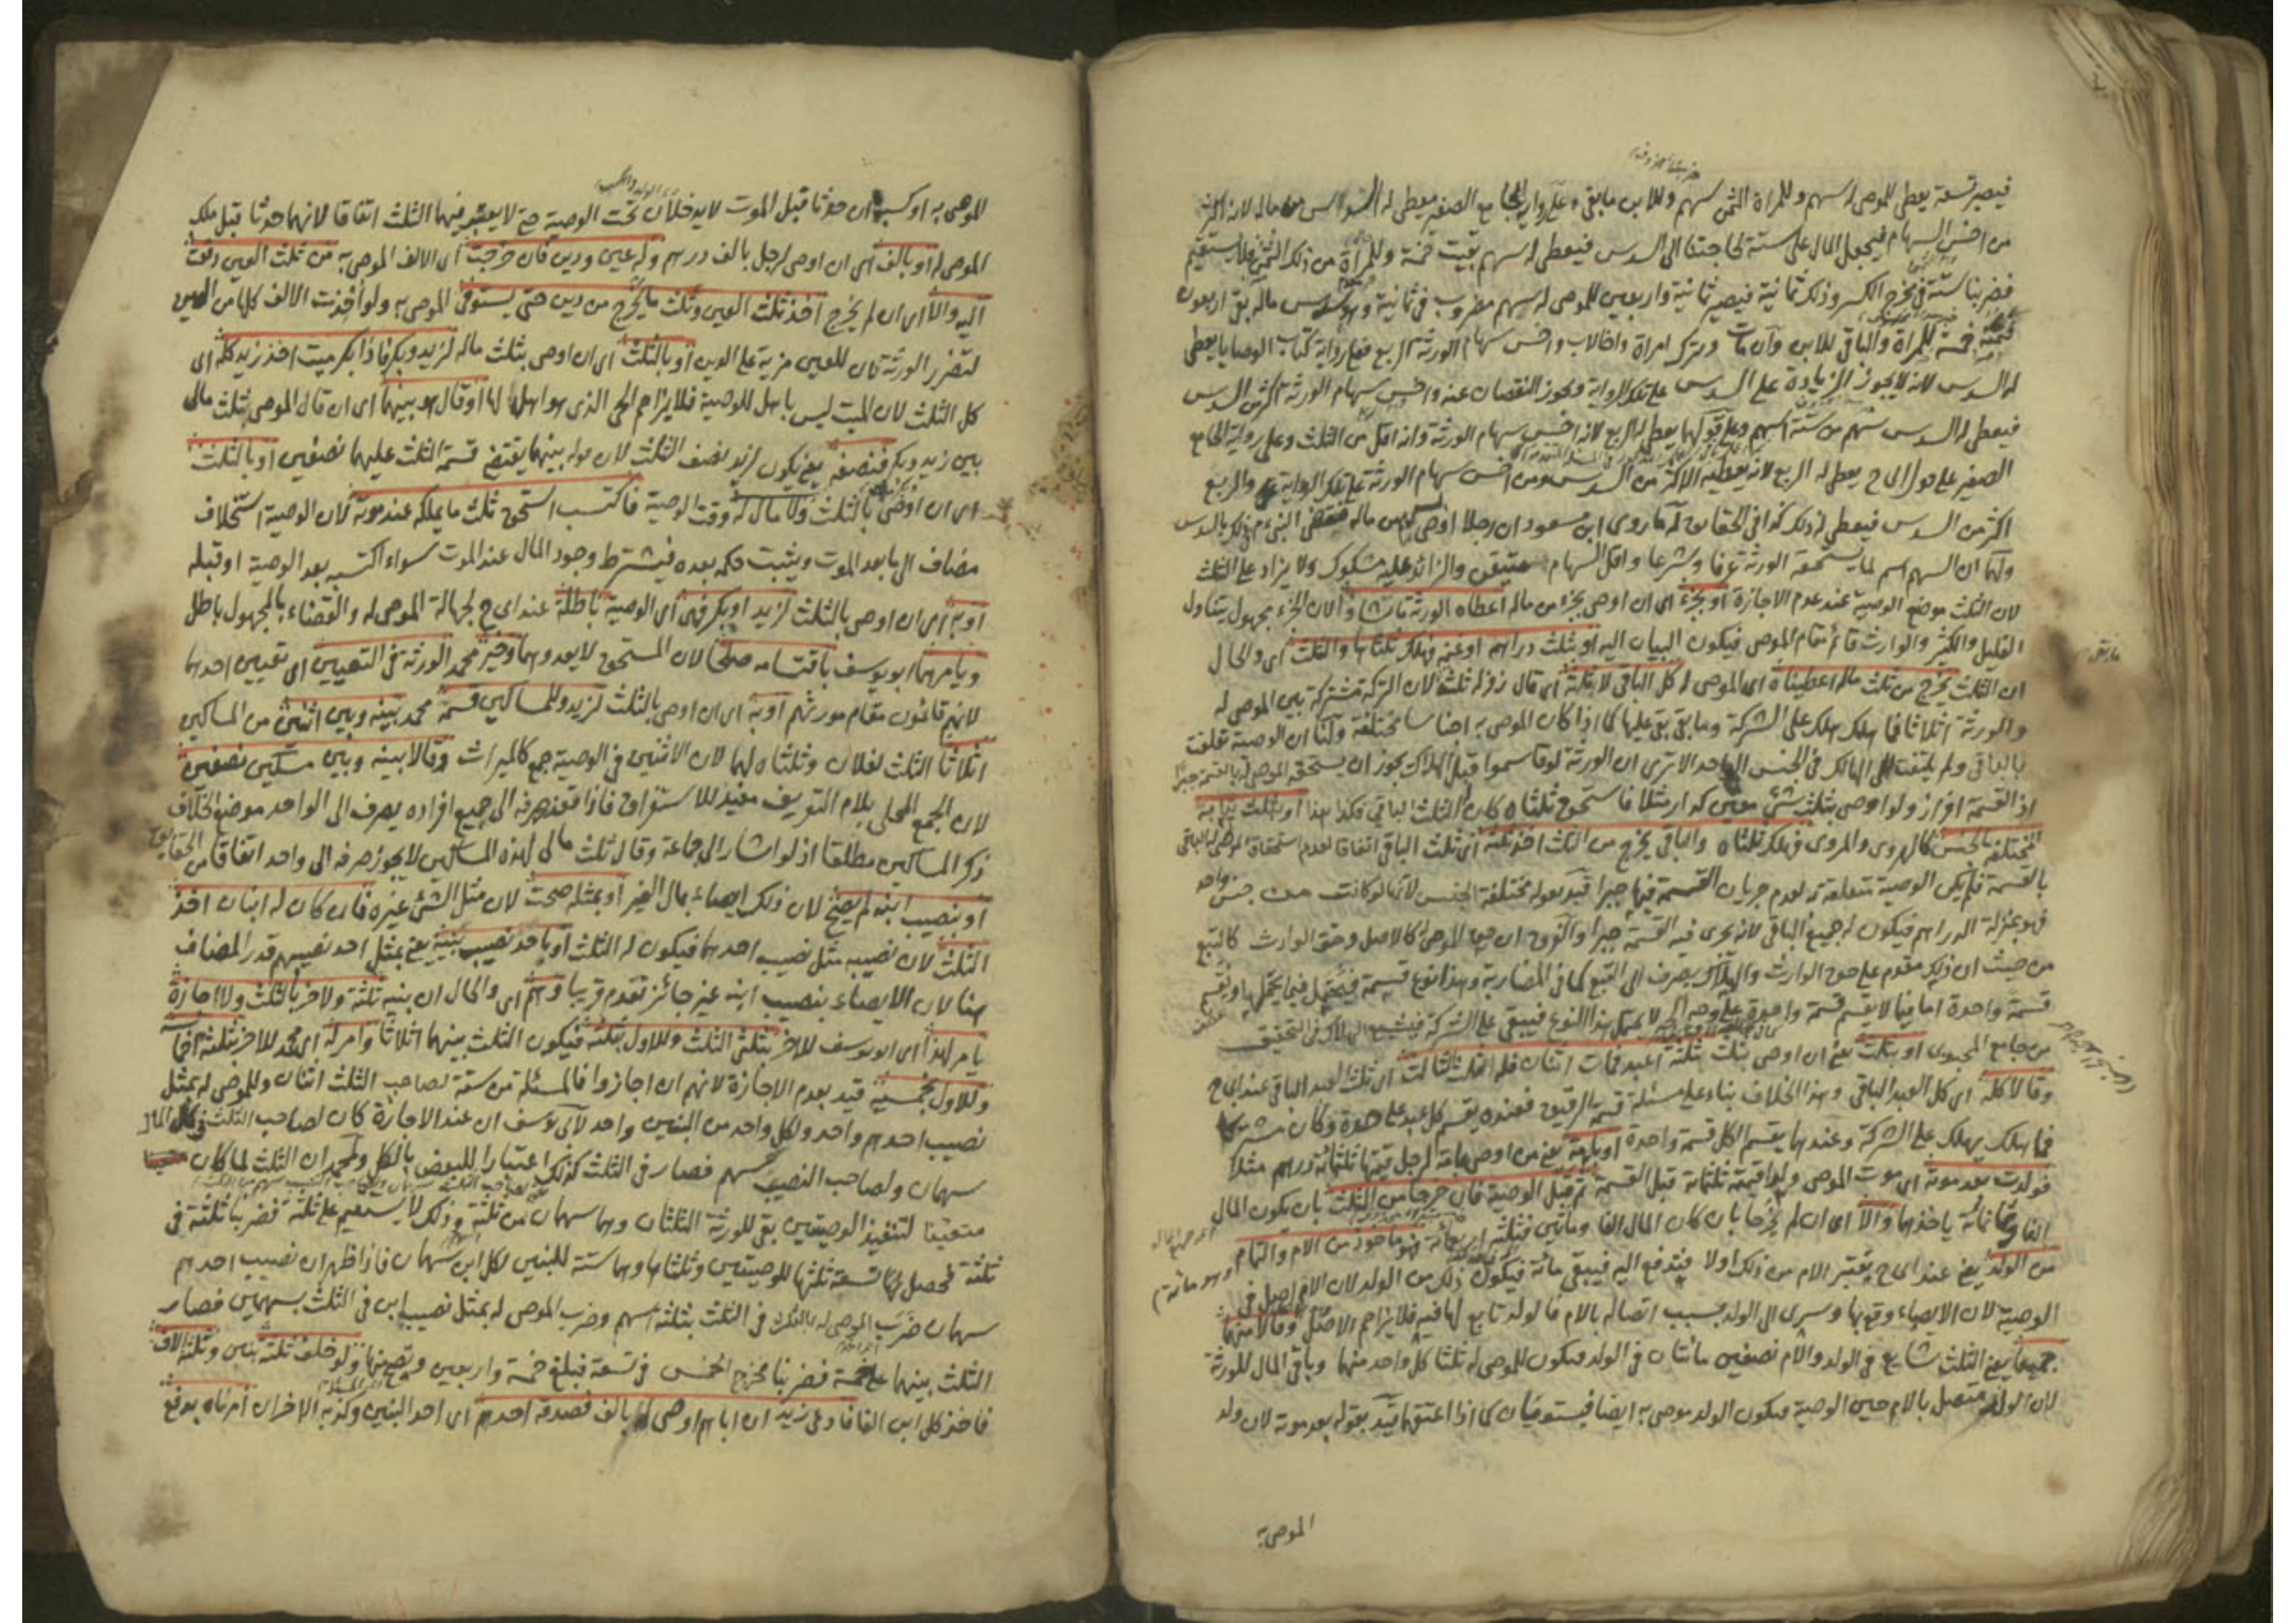 فيصير تسعة يعطى للموصى له سهم وللمرأة الثمن سهم وللابن ما بقي وعلى رواية الجامع الصغير يعطى له السدس من ماله لانه اكثر
من اخس السهام فيجعل المال على ستة لحاجتنا الى السدس فيعطى له سهم بقيت خمسة وللمرأة من ذلك الثمن فلا يستقيم
فضربنا ستة في مخرج الكسر وذلك ثمانية فيصير ثمانية واربعين للموصى له سهم مضروب في ثمانية وهو سدس ماله بقي اربعون
خمسة للمرأة والباقي للابن وان مات وترك امرأة واخا لاب واخس سهام الورثة الربع فعلى رواية كتاب الوصايا يعطى
له السدس لانه لا يجوز الزيادة على السدس على تلك الرواية ويجوز النقصان عنه واخس سهام الورثة اكثر من السدس
فيعطى له السدس سهم من ستة اسهم وعلى قولهما يعطى له الربع لانه اخس سهام الورثة وانه اقل من الثلث وعلى رواية الجامع
الصغير على قول ابي ح يعطى له الربع لانه يعطيه الاكثر من السدس ومن اخس سهام الورثة على تلك الرواية والربع
اكثر من السدس فيعطى له ذلك كذا في الحقايق له ما روى ابن مسعود ان رجلا اوصى بسهم من ماله فقضى النبي عم في ذلك بالسدس
ولهما ان السهم اسم لما يستحقه الورثة عرفا وشرعا واقل السهام متيقن والزائد عليه مشكوك ولا يزاد على الثلث
لان الثلث موضع الوصية عند عدم الاجازة او بجزء اى ان اوصى بجزء من ماله اعطاه الورثة ما شاؤا لان الجزء مجهول يتناول
القليل والكثير والوارث قائم مقام الموصى فيكون البيان اليه او بثلث دراهم او غنم فهلك ثلثاها والثلث اى والحال
ان الثلث يخرج من ثلث ماله اعطيناه اى الموصى له كل الباقي لا ثلثه اى قال زفر له ثلثه لان التركة مشتركة بين الموصى له
والورثة اثلاثا فما هلك هلك على الشركة وما بقي بقي عليها كما اذا كان الموصى به اجناسا مختلفة ولنا ان الوصية تعلقت
بالباقي ولم يلتفت الى الهالك في الجنس الواحد الا ترى ان الورثة لو قاسموا قبل الهلاك يجوز ان يستحقه الموصى له بالقسمة جبرا
اذ القسمة افراز ولو اوصى بثلث شئ معين كدار مثلا فاستحق ثلثاه كان الثلث الباقي فكذا هذا او بثلث ثيابه
المختلفة الجنس كالهروى والمروى فهلك ثلثاه والباقي يخرج من الثلث اخذ ثلثه اى ثلث الباقي اتفاقا لعدم استحقاق الموصى له الباقي
بالقسمة فلم يكن الوصية متعلقة به لعدم جريان القسمة فيها جبرا قيد بقوله مختلفة الجنس لانها لو كانت من جنس واحد
فهو بمنزلة الدراهم فيكون له جميع الباقي لانه يجرى فيه القسمة جبرا والفرق ان حق الموصى له كالاصل وحق الوارث كالتبع
من حيث ان ذلك مقدم على حق الوارث والهلاك يصرف الى التبع كما في المضاربة وهذا نوع قسمة فيتحمل فيما يحتملها ويقسم
قسمة واحدة اما فيما لا يقسم قسمة واحدة على وجه الجبر لا يحتمل هذا النوع فيبقى على الشركة
من جامع المحبوبى او بثلث يعنى ان اوصى بثلث ثلثة اعبد فمات اثنان فله ثلث الثالث اى ثلث العبد الباقي عند ابى ح
وقالا كله اى كل العبد الباقي وهذا الخلاف بناء على مسئلة قسمة الرقيق فعنده يقسم كل عبد على حدة وكان مشتركا
فما هلك يهلك على الشركة وعندهما يقسم الكل قسمة واحدة او بامة يعنى من اوصى بامة لرجل قيمتها ثلثمائة درهم مثلا
فولدت بعد موته اى موت الموصى ولدا قيمته ثلثمائة قبل القسمة ثم قبل الوصية فان خرجا من الثلث بان يكون المال
الفا وثمانمائة ياخذهما والا اى ان لم يخرجا بان كان المال الفا ومأتين فثلثه اربعمائة فهو ماخوذ من الام والتمام
من الولد يعنى عند ابى ح يعتبر الام من ذلك اولا فيدفع اليه فيبقى مائة فيكون ذلك من الولد لان الام اصل في
الوصية لان الايصاء وقع بها وسرى الى الولد بسبب اتصاله بالام فالولد تابع لها فيه فلا يزاحم الاصل وقالا منهما
جميعا يعنى الثلث شايع في الولد والام نصفين مائتان في الولد فيكون للموصى له ثلثا كل واحد منهما وباقي المال للورثة
لان الولد متصل بالام حين الوصية فيكون الولد موصى به ايضا فيستوفيان كما اذا اعتقها قيد بقوله بعد موته لان ولد
الموصى به
للموصى به او كسبه ان حدثا قبل الموت لا يدخلان تحت الوصية حتى لا يعتبر فيهما الثلث اتفاقا لانهما حدثا قبل ملك
الموصى له او بالف اى ان اوصى لرجل بالف درهم وله عين ودين فان خرجت اى الالف الموصى به من ثلث العين دفعت
اليه والا اى ان لم يخرج اخذ ثلث العين وثلث ما يخرج من دين حتى يستوفى الموصى به ولو اخذت الالف كلها من العين
لتضرر الورثة لان للعين مزية على الدين او بالثلث اى ان اوصى بثلث ماله لزيد وبكر فاذا بكر ميت اخذ زيد كله اى
كل الثلث لان الميت ليس باهل للوصية فلا يزاحم الحى الذى هو اهل لها او قال هو بينهما اى ان قال الموصى ثلث مالى
بين زيد وبكر فنصفه يعنى يكون لزيد نصف الثلث لان قوله بينهما يقتضى قسمة الثلث عليهما نصفين او بالثلث
اى ان اوصى بالثلث ولا مال له وقت الوصية فاكتسب استحق ثلث ما يملكه عند موته لان الوصية استخلاف
مضاف الى ما بعد الموت ويثبت حكمه بعده فيشترط وجود المال عند الموت سواء اكتسبه بعد الوصية او قبله
او به اى ان اوصى بالثلث لزيد او بكر فهى اى الوصية باطلة عند ابى ح لجهالة الموصى له والقضاء بالمجهول باطل
ويامرهما ابو يوسف باقتسامه صلحا لان المستحق لا يعدوهما وخير محمد الورثة في التعيين اى تعيين احدهما
لانهم قائمون مقام مورثهم او به اى ان اوصى بالثلث لزيد وللمساكين قسمه محمد بينه وبين اثنين من المساكين
اثلاثا الثلث لفلان وثلثاه لهما لان الاثنين في الوصية جمع كالميراث وقالا بينه وبين مسكين نصفين
لان الجمع المحلى بلام التعريف مفيد للاستغراق فاذا تعذر صرفه الى جميع افراده يصرف الى الواحد موضع الخلاف
ذكر المساكين مطلقا اذ لو اشار الى جماعة وقال ثلث مالى لهذه المساكين لا يجوز صرفه الى واحد اتفاقا من الحقايق
او بنصيب ابنه لم يصح لان ذلك ايصاء بمال الغير او بمثله صحت لان مثل الشئ غيره فان كان له ابنان اخذ
الثلث لان نصيبه مثل نصيب احدهما فيكون له الثلث او باحد نصيب بنيه يعنى بمثل احد نصيبهم قدر المضاف
هنا لان الايصاء بنصيب ابنه غير جائز تقدم قريبا وهم اى والحال ان بنيه ثلثة ولاخر بالثلث ولا اجازة
يامر لهذا اى ابو يوسف للاخر بثلثى الثلث وللاول بثلثه فيكون الثلث بينهما اثلاثا وامر له اى محمد للاخر بثلثة اخماسه
وللاول بخمسيه قيد بعدم الاجازة لانهم ان اجازوا فالمسئلة من ستة لصاحب الثلث اثنان وللموصى له بمثل
نصيب احدهم واحد ولكل واحد من البنين واحد لابى يوسف ان عند الاجازة كان لصاحب الثلث في كل المال
سهمان ولصاحب النصيب سهم فصار في الثلث كذلك اعتبارا للبعض بالكل ولمحمد ان الثلث لما كان
متعينا لتنفيذ الوصيتين بقى للورثة الثلثان وهما سهمان من ثلثة وذلك لا يستقيم على ثلثة فضربنا ثلثة في
ثلثة فحصل تسعة ثلثها للوصيتين وثلثاها وهما ستة للبنين لكل ابن سهمان فاذا ظهر ان نصيب احدهم
سهمان ضرب الموصى له بالثلث في الثلث بثلثة اسهم وضرب الموصى له بمثل نصيب ابن في الثلث بسهمين فصار
الثلث بينهما على خمسة فضربنا مخرج الخمس في تسعة فبلغ خمسة واربعين وتصح منها ولو خلف ثلثة بنين وثلثة الاف
فاخذ كل ابن الفا فادعى زيد ان اباهم اوصى له بالف فصدقه احدهم اى احد البنين وكذبه الاخران امرناه بدفع